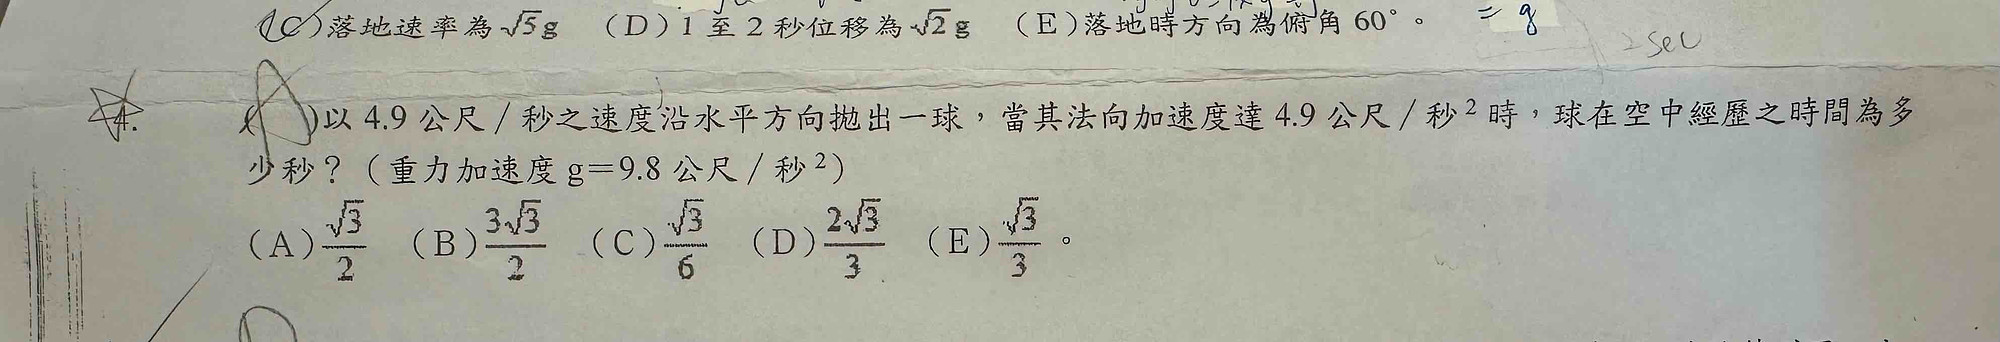 (C)落地速率為√5g (D)1至2秒位移為√2g (E)落地時方向為俯角60°。 = g
2 sec
4. (A)以4.9公尺/秒之速度沿水平方向拋出一球，當其法向加速度達4.9公尺/秒²時，球在空中經歷之時間為多
少秒？(重力加速度g=9.8公尺/秒²)
(A)√3/2 (B)3√3/2 (C)√3/6 (D)2√3/3 (E)√3/3。